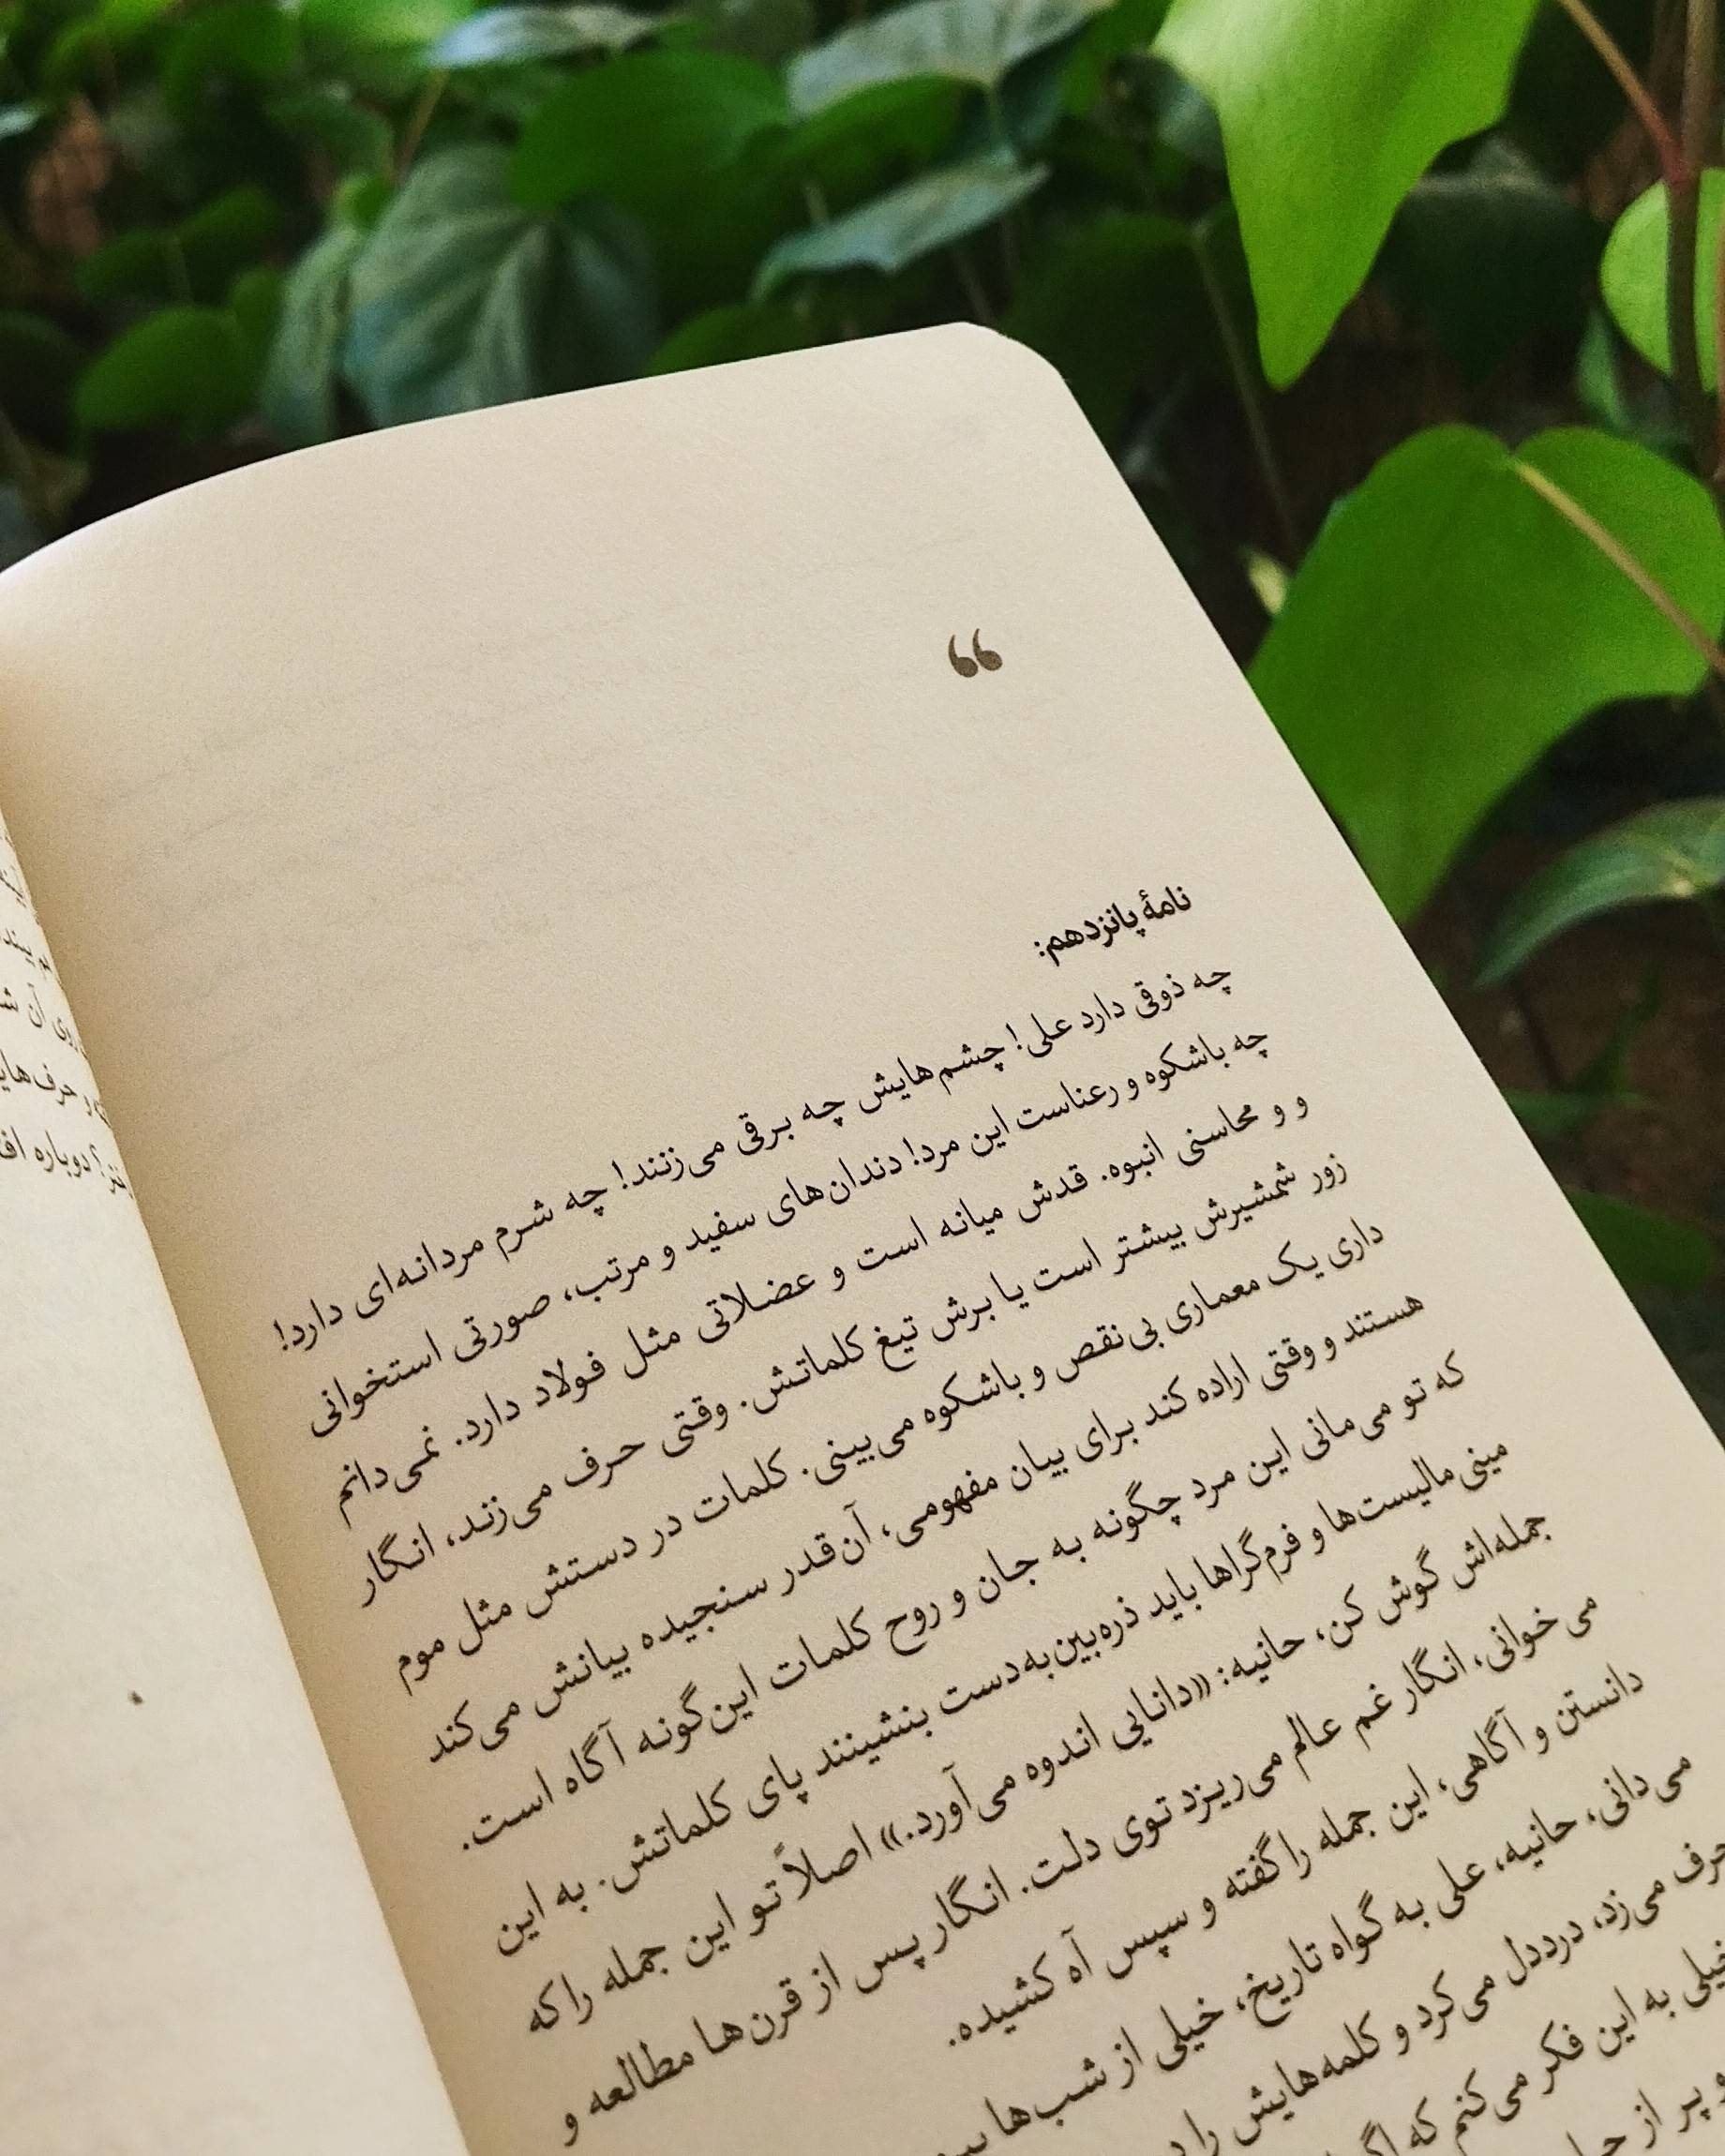 “
نامهٔ پانزدهم:
چه ذوقی دارد علی! چشم‌هایش چه برقی می‌زنند! چه شرم مردانه‌ای دارد!
چه باشکوه و رعناست این مرد! دندان‌های سفید و مرتب، صورتی استخوانی
و و محاسنی انبوه. قدش میانه است و عضلاتی مثل فولاد دارد. نمی‌دانم
زور شمشیرش بیشتر است یا برش تیغ کلماتش. وقتی حرف می‌زند، انگار
داری یک معماری بی‌نقص و باشکوه می‌بینی. کلمات در دستش مثل موم
هستند و وقتی اراده کند برای بیان مفهومی، آن‌قدر سنجیده بیانش می‌کند
که تو می‌مانی این مرد چگونه به جان و روح کلمات این‌گونه آگاه است.
مینی‌مالیست‌ها و فرم‌گراها باید ذره‌بین‌به‌دست بنشینند پای کلماتش. به این
جمله‌اش گوش کن، حانیه: «دانایی اندوه می‌آورد.» اصلاً تو این جمله را که
می خوانی، انگار غم عالم می‌ریزد توی دلت. انگار پس از قرن‌ها مطالعه و
دانستن و آگاهی، این جمله را گفته و سپس آه کشیده.
می‌دانی، حانیه، علی به گواه تاریخ، خیلی از شب‌ها
حرف می‌زد، درددل می‌کرد و کلمه‌هایش را
خیلی به این فکر می‌کنم که
و پر از